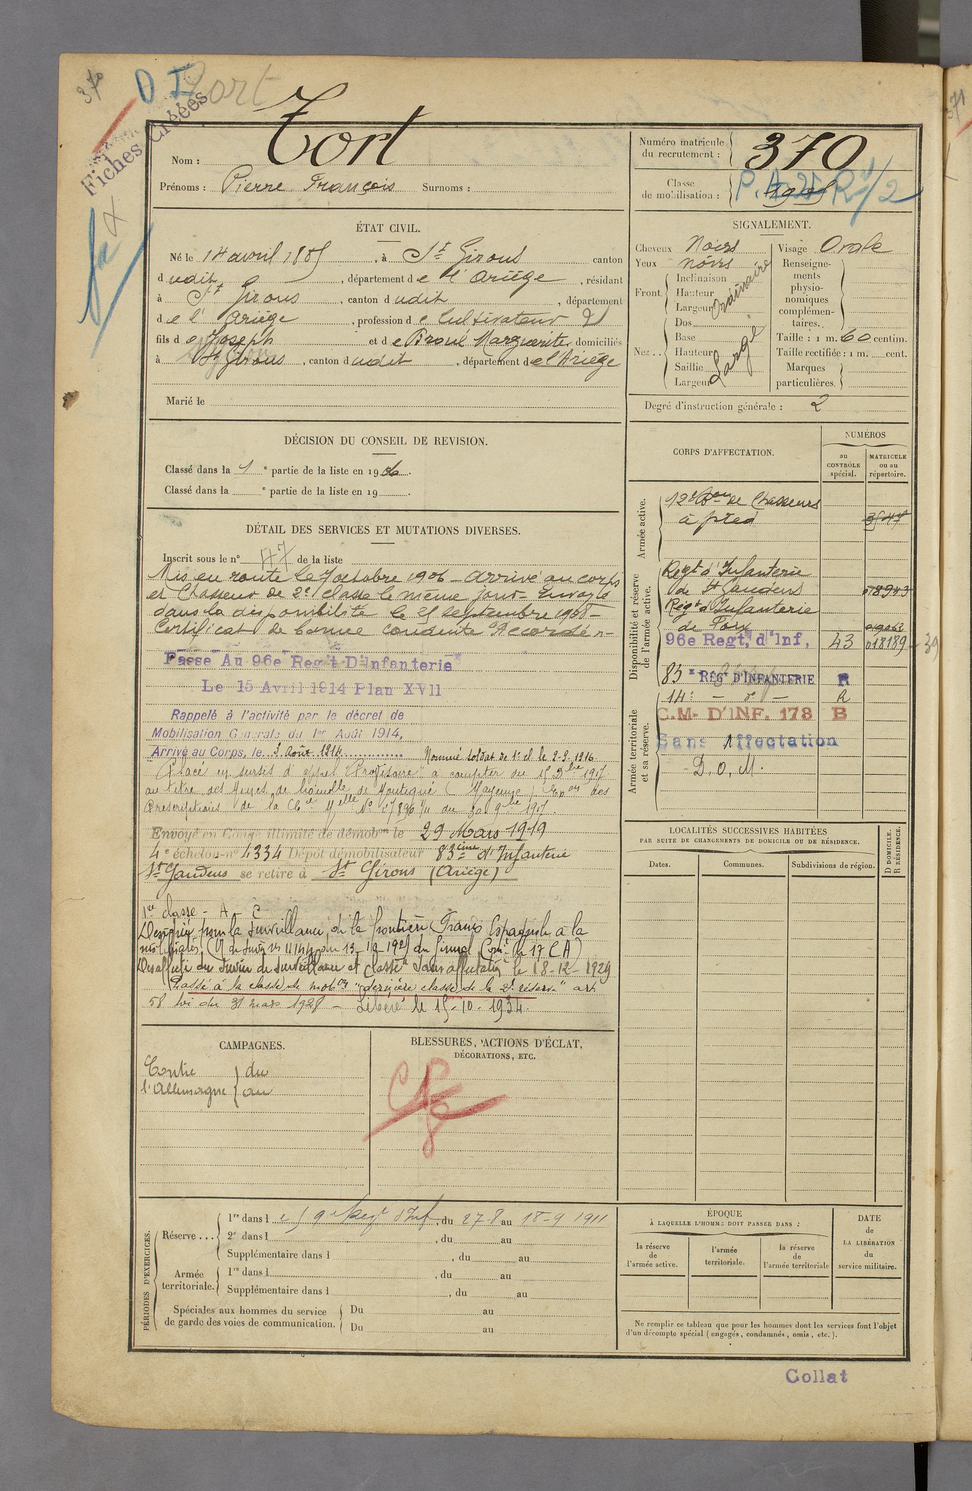 370
D I Tort
Fiches Créées
371
Nom : Tort
Prénoms : Pierre François Surnoms :
Numéro matricule du recrutement : 370
Classe de mobilisation :
ÉTAT CIVIL.
Né le 14 avril 1885, à St Girons canton
dudit, département de l'Ariège, résidant
à St Girons, canton dudit, département
de l'Ariège, profession de Cultivateur
fils de Joseph et de Broué Marguerite domiciliés
à St Girons, canton dudit, département de l'Ariège
Marié le
SIGNALEMENT.
Cheveux Noirs
Yeux noirs
Front Inclinaison Hauteur Largeur Ordinaire
Nez Dos Base Hauteur Saillie Largeur Large
Visage Ovale
Renseignements physionomiques complémentaires.
Taille : 1 m. 60 centim.
Taille rectifiée : 1 m. cent.
Marques particulières.
Degré d'instruction générale : 2
DÉCISION DU CONSEIL DE REVISION.
Classé dans la 1e partie de la liste en 1906.
Classé dans la e partie de la liste en 19 .
DÉTAIL DES SERVICES ET MUTATIONS DIVERSES.
Inscrit sous le n° 47 de la liste
Mis en route le 7 octobre 1906 - arrivé au corps
et Chasseur de 2e classe le même jour - Envoyé
dans la disponibilité le 25 septembre 1908 -
Certificat de bonne conduite "Accordé" -
Passé Au 96e Reg't D'Infanterie
Le 15 Avril 1914 Plan XVII
Rappelé à l'activité par le décret de
Mobilisation Générale du 1er Août 1914,
Arrivé au Corps, le 3 Août 1914 Nommé soldat de 1e cl. le 2-9-1916
Placé en sursis d'appel
au titre des Mines de houille de Montigné (Mayenne)
Envoyé en Congé illimité de démobon le 29 Mars 1919
4e échelon n° 4334 Dépôt démobilisateur 83ème d'Infanterie
St Gaudens se retire à St Girons (Ariège)
1ere classe - A - C
Désigné pour la surveillance de la frontière Franco Espagnole
Désaffecté du service de surveillance et classé "sans affectation" le 18-12-1929
Passé à la classe de mobon "dernière classe de la 2e réserve" art.
58 loi du 31 mars 1928 - Libéré le 15-10-1934.
CORPS D'AFFECTATION.
NUMÉROS
au CONTRÔLE spécial.
MATRICULE ou au répertoire.
Armée active.
12e Bon de Chasseurs
à pied 3545
Disponibilité et réserve de l'armée active.
Regt d'Infanterie
de St Gaudens
Régt d'Infanterie
de Foix
96e Regt, d'Inf, 43 018189
83e REGt D'INFANTERIE R
14e - do - R
Armée territoriale et sa réserve.
C.M. D'INF. 178 B
Sans Affectation
- D. O. M.
LOCALITÉS SUCCESSIVES HABITÉES
PAR SUITE DE CHANGEMENTS DE DOMICILE OU DE RÉSIDENCE.
Dates. Communes. Subdivisions de région.
D DOMICILE. R RÉSIDENCE.
CAMPAGNES.
Contre l'Allemagne du au
BLESSURES, ACTIONS D'ÉCLAT,
DÉCORATIONS, ETC.
PÉRIODES D'EXERCICES.
Réserve...
1re dans le 59e Regt d'Inf, du 27-8 au 18-9 1911
2e dans l , du au
Supplémentaire dans l , du au
Armée territoriale.
1re dans l , du au
Supplémentaire dans l , du au
Spéciales aux hommes du service
de garde des voies de communication.
Du au
Du au
ÉPOQUE
À LAQUELLE L'HOMME DOIT PASSER DANS :
la réserve de l'armée active.
l'armée territoriale.
la réserve de l'armée territoriale
DATE DE LA LIBÉRATION du service militaire.
Ne remplir ce tableau que pour les hommes dont les services font l'objet
d'un décompte spécial (engagés, condamnés, omis, etc.).
Collat